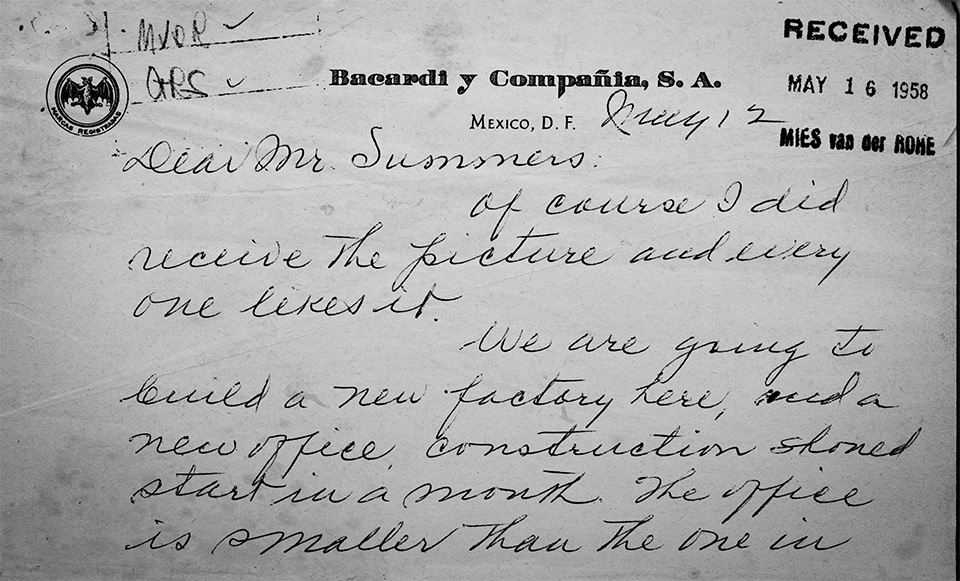 MVDR
GRS
RECEIVED
MAY 16 1958
MIES van der ROHE
MARCAS REGISTRADAS
Bacardi y Compañia, S. A.
MEXICO, D. F. May 12
Dear Mr. Summers:
Of course I did
receive the picture and every
one likes it.
We are going to
build a new factory here, and a
new office, construction shoned
start in a month. The office
is smaller than the one in